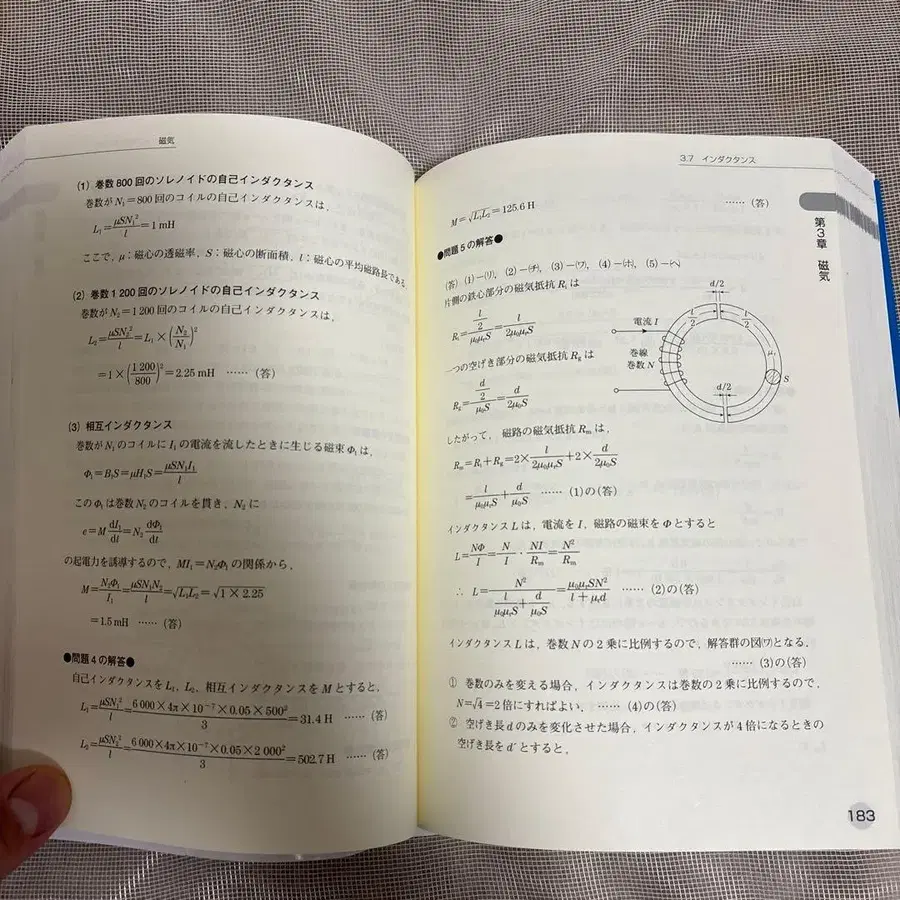 磁気
(1) 巻数800回のソレノイドの自己インダクタンス
巻数がN₁=800回のコイルの自己インダクタンスは,
L₁=μSN₁²/l=1 mH
ここで, μ:磁心の透磁率, S:磁心の断面積, l:磁心の平均磁路長である.
(2) 巻数1 200回のソレノイドの自己インダクタンス
巻数がN₂=1 200回のコイルの自己インダクタンスは,
L₂=μSN₂²/l=L₁×(N₂/N₁)²
=1×(1 200/800)²=2.25 mH ……(答)
(3) 相互インダクタンス
巻数がN₁のコイルにI₁の電流を流したときに生じる磁束Φ₁は,
Φ₁=B₁S=μH₁S=μSN₁I₁/l
このΦ₁は巻数N₂のコイルを貫き, N₂に
e=M dI₁/dt=N₂ dΦ₁/dt
の起電力を誘導するので, MI₁=N₂Φ₁の関係から,
M=N₂Φ₁/I₁=μSN₁N₂/l=√L₁L₂=√1×2.25
=1.5 mH ……(答)
●問題4の解答●
自己インダクタンスをL₁, L₂, 相互インダクタンスをMとすると,
L₁=μSN₁²/l=6 000×4π×10⁻⁷×0.05×500²/3=31.4 H ……(答)
L₂=μSN₂²/l=6 000×4π×10⁻⁷×0.05×2 000²/3=502.7 H ……(答)
3.7 インダクタンス
M=√L₁L₂=125.6 H ……(答)
●問題5の解答●
(答) (1)-(リ), (2)-(チ), (3)-(ワ), (4)-(ホ), (5)-(ヘ)
片側の鉄心部分の磁気抵抗Rᵢは
Rᵢ=(l/2)/μ₀μᵣS=l/2μ₀μᵣS
一つの空げき部分の磁気抵抗Rgは
Rg=(d/2)/μ₀S=d/2μ₀S
d/2
l/2
l/2
電流I
巻線
巻数N
μᵣ
S
d/2
したがって, 磁路の磁気抵抗Rmは,
Rm=Rᵢ+Rg=2×l/2μ₀μᵣS+2×d/2μ₀S
=l/μ₀μᵣS+d/μ₀S ……(1)の(答)
インダクタンスLは, 電流をI, 磁路の磁束をΦとすると
L=NΦ/I=N/I・NI/Rm=N²/Rm
∴ L=N²/(l/μ₀μᵣS+d/μ₀S)=μ₀μᵣSN²/(l+μᵣd) ……(2)の(答)
インダクタンスLは, 巻数Nの2乗に比例するので, 解答群の図(ワ)となる.
……(3)の(答)
① 巻数のみを変える場合, インダクタンスは巻数の2乗に比例するので,
N=√4=2倍にすればよい. ……(4)の(答)
② 空げき長dのみを変化させた場合, インダクタンスが4倍になるときの
空げき長をd′とすると,
第3章 磁気
183